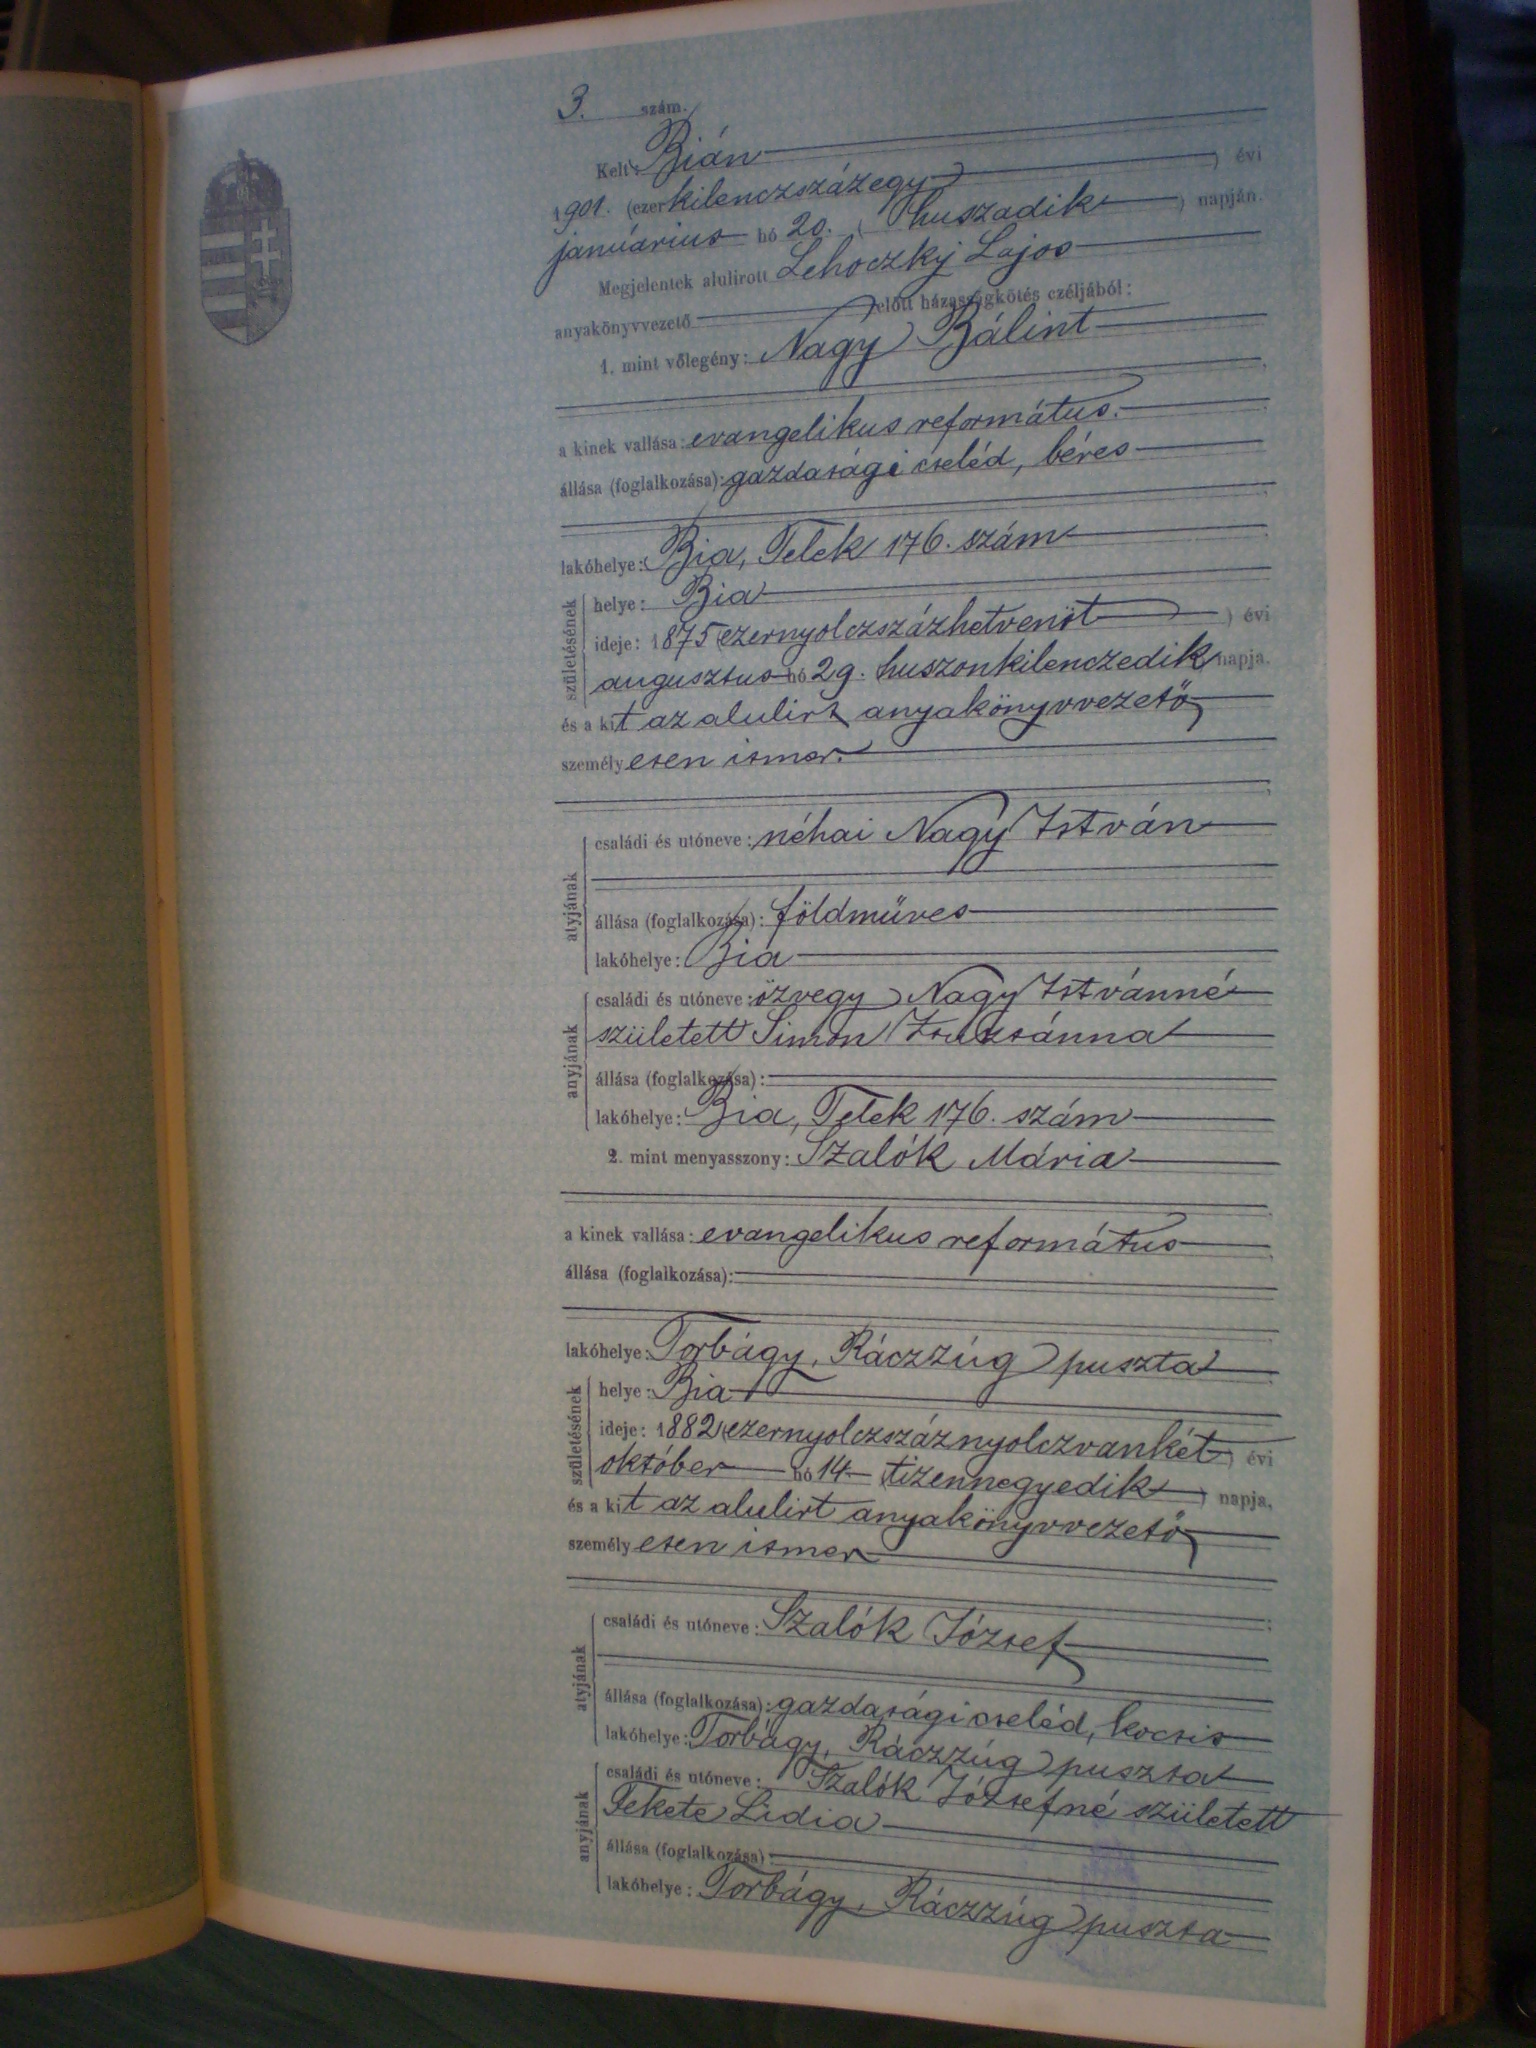 3. szám.
Kelt: Bián
1901. (ezerkilenczszázegy) évi
januárius hó 20. (huszadik) napján.
Megjelentek alulirott Lehoczky Lajos
anyakönyvvezető előtt házasságkötés czéljából:
1. mint vőlegény: Nagy Bálint
a kinek vallása: evangelikus református.
állása (foglalkozása): gazdasági cseléd, béres
lakóhelye: Bia, Telek 176. szám
születésének
helye: Bia
ideje: 1875 (ezernyolczszázhetvenöt) évi
augusztus hó 29. huszonkilenczedik napja.
és a kit az alulirt anyakönyvvezető
személyesen ismer.
atyjának
családi és utóneve: néhai Nagy István
állása (foglalkozása): földmüves
lakóhelye: Bia
anyjának
családi és utóneve: özvegy Nagy Istvánné
született Simon Zsuzsánna
állása (foglalkozása):
lakóhelye: Bia, Telek 176. szám
2. mint menyasszony: Szalók Mária
a kinek vallása: evangelikus református
állása (foglalkozása):
lakóhelye: Torbágy, Ráczzúg puszta
születésének
helye: Bia
ideje: 1882 (ezernyolczsáznyolczvankét) évi
október hó 14 (tizennegyedik) napja,
és a kit az alulirt anyakönyvvezető
személyesen ismer
atyjának
családi és utóneve: Szalók József
állása (foglalkozása): gazdasági cseléd, kocsis
lakóhelye: Torbágy, Ráczzúg puszta
anyjának
családi és utóneve: Szalók Józsefné született
Fekete Lidia
állása (foglalkozása):
lakóhelye: Torbágy, Ráczzúg puszta